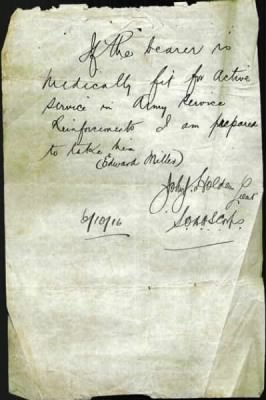 If the bearer is
Medically fit for Active
Service in Army Service
Reinforcements I am prepared
to take him
(Edward Milles)
John J. Holden
Lieut
6/10/16